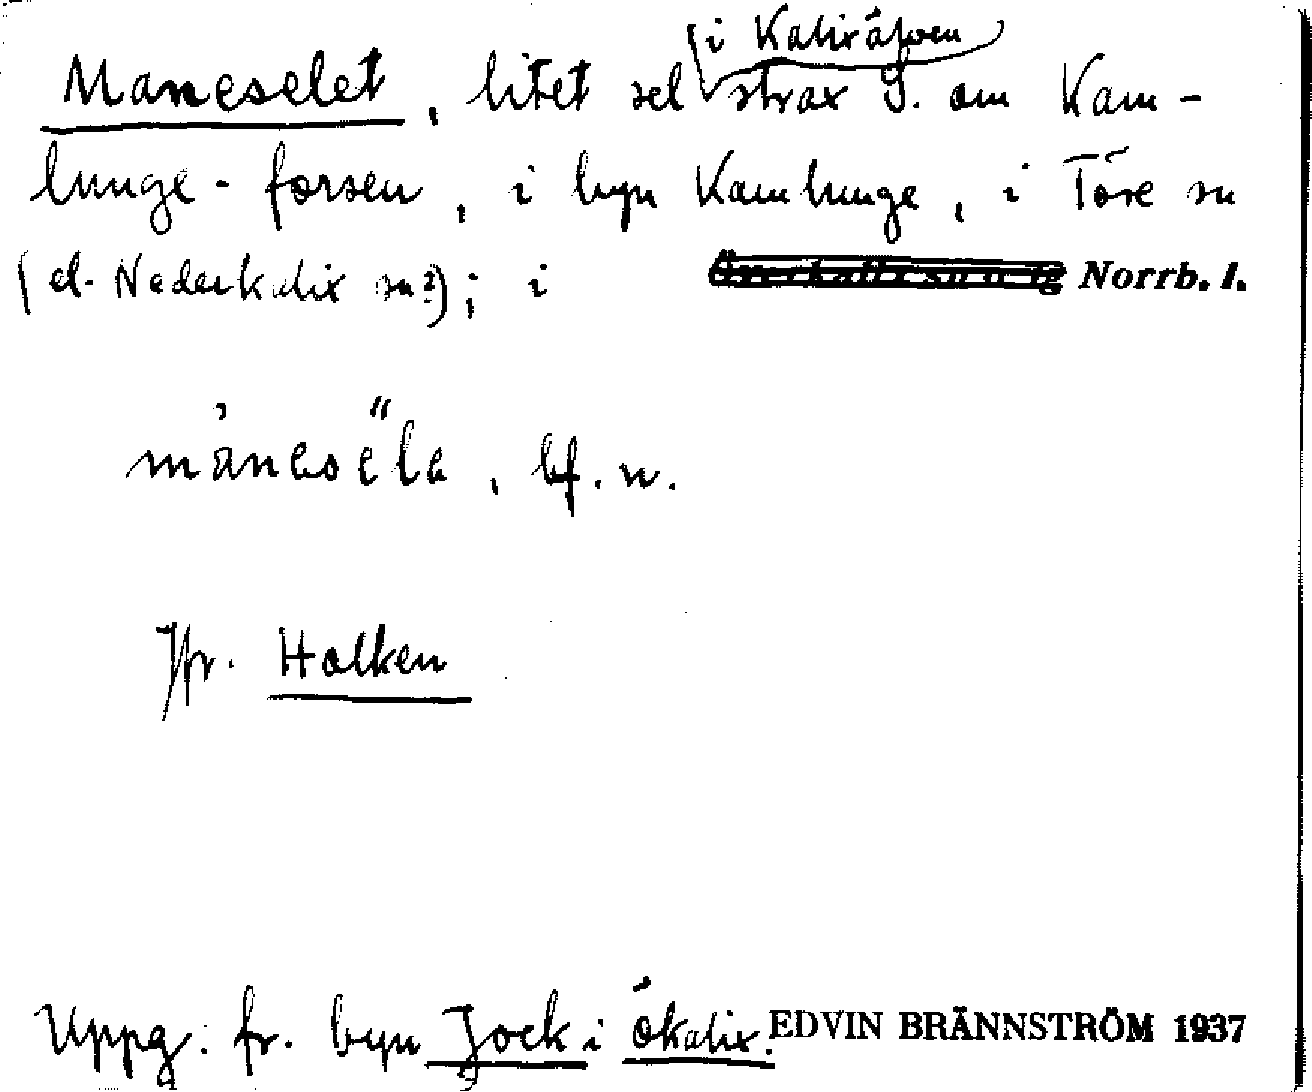 Maneselet, litet sel (i Kalixälven) strax S. om Kam-
lunge-forsen, i byn Kamlunge, i Töre sn
(el. Nederkalix sn?); i Överkalix sn o. tg Norrb. l.
månesela, bf. n.
Jfr. Holken
Uppg. fr. byn Jock i Ökalix. EDVIN BRÄNNSTRÖM 1937